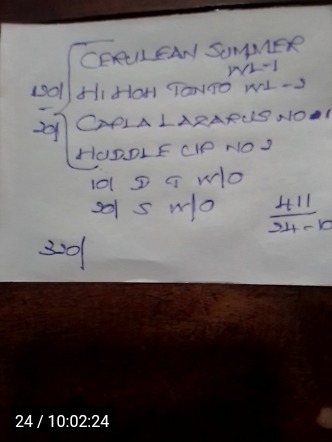 CERULEAN SUMMER
WL-1
120/ HI HOH TONTO WL-2
20/ CAPLA LAZARUS NO-1
HUDDLE CIP NO 2
10/ D G W/O
20/ S W/O
411
24-10
320/
24 / 10:02:24